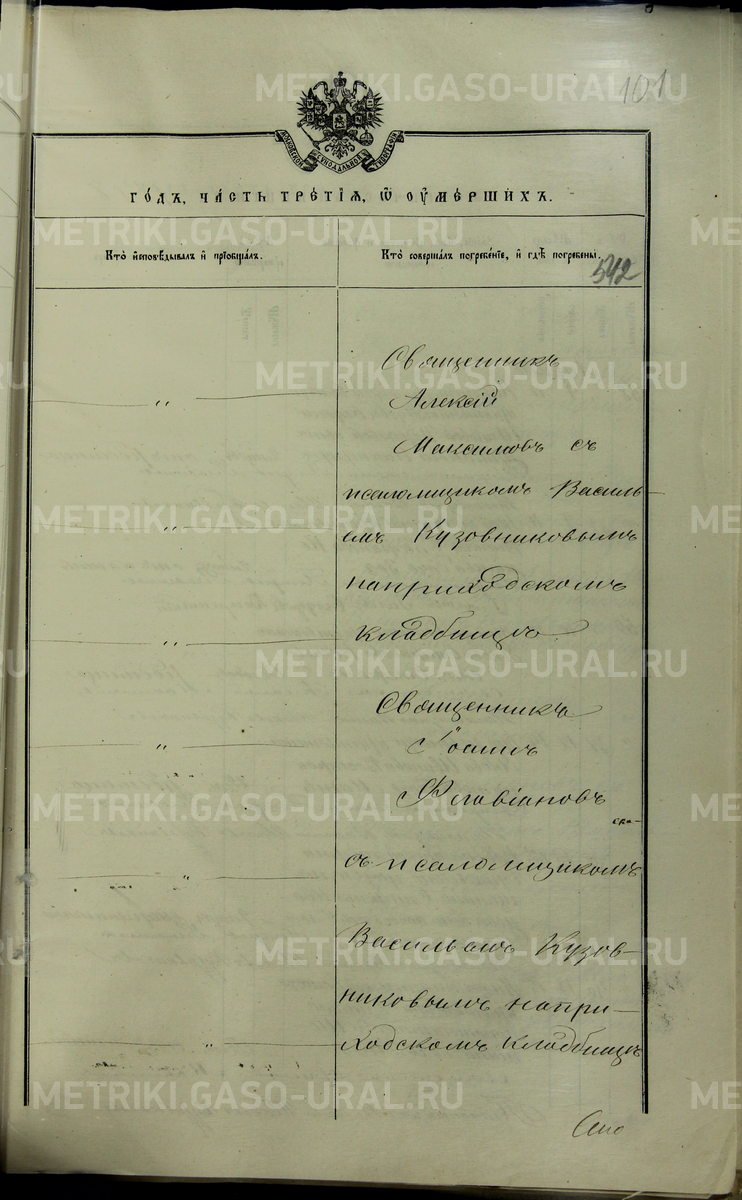 101
ГО́ДЪ, ЧА́СТЬ ТРЕ́ТІЯ, Ѿ ОУМЕ́РШИХЪ.
Кто̀ и҆сповѣ́дывалъ и҆ прїѡбща́лъ.
Кто̀ соверша́лъ погребе́нїе, и҆ гдѣ̀ погребены̀.
542
Священникъ
„
Алексій
Максимовъ съ
псаломщикомъ Василь-
„
емъ Кузовниковымъ
на приходскомъ
„
кладбищѣ
Священникъ
„
Іоаннъ
Флавіановъ
съ псаломщикомъ
„
Васильемъ Кузов-
никовымъ на при-
„
ходскомъ кладбищѣ
METRIKI.GASO-URAL.RU